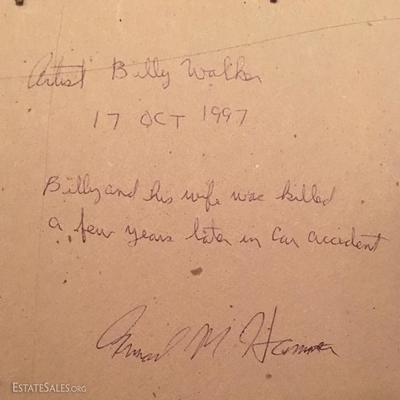 Artist Billy Walker
17 OCT 1997
Billy and his wife was killed
a few years later in Car accident
M
ESTATESALES.ORG